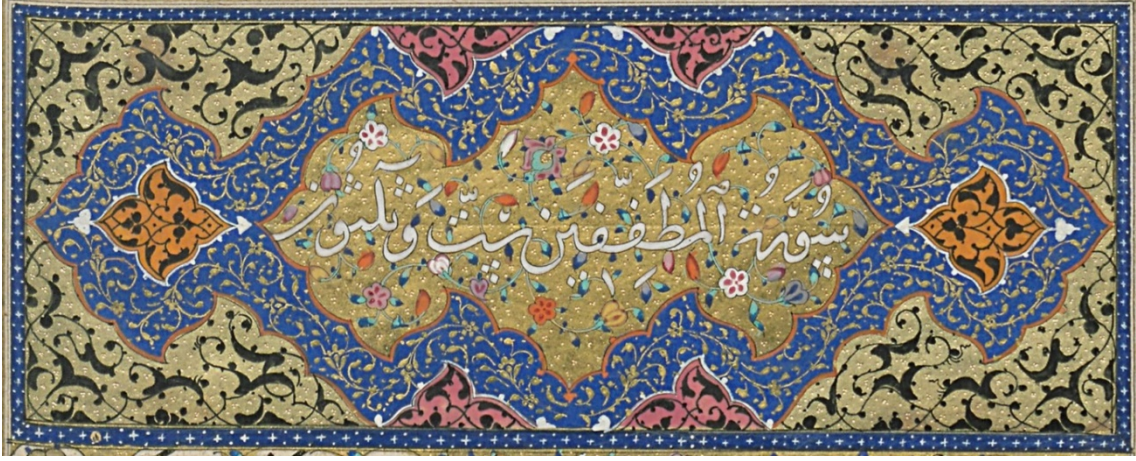 سُورَة ٱلمُطَفِّفِين سِتّ وَثَلٰثُون